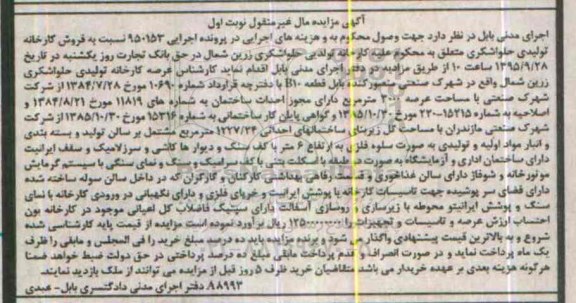 آگهی مزایده مال غیرمنقول نوبت اول
اجرای مدنی بابل در نظر دارد جهت وصول محکوم به و هزینه های اجرایی در پرونده اجرایی ۹۵۰۱۵۳ نسبت به فروش کارخانه
تولیدی حلواشکری متعلق به محکوم علیه کارخانه تولیدی حلواشکری زرین شمال در حق بانک تجارت روز یکشنبه در تاریخ
۱۳۹۵/۹/۲۸ ساعت ۱۰ از طریق مزایده در دفتر اجرای مدنی بابل اقدام نماید کارشناس عرصه کارخانه تولیدی حلواشکری
زرین شمال واقع در شهرک صنعتی منصورکنده بابل قطعه B۱۰ با دفترچه قرارداد شماره ۱۰۶۹۰ مورخ ۱۳۸۴/۷/۲۸ از شرکت
شهرک صنعتی با مساحت عرصه ۳۰۰۰ مترمربع دارای مجوز احداث ساختمان به شماره های ۱۱۸۱۹ مورخ ۱۳۸۴/۸/۲۱ و
اصلاحیه به شماره ۱۵۲۱۵-۲۲۰ مورخ ۱۳۸۵/۱۰/۳۰ و گواهی پایان کار ساختمانی به شماره ۱۵۳۱۶ مورخ ۱۳۸۵/۱۰/۳۰ از شرکت
شهرک صنعتی مازندران با مساحت کل زیربنای ساختمانهای احداثی ۱۲۲۷/۲۴ مترمربع مشتمل بر سالن تولید و بسته بندی
و انبار مواد اولیه و تولیدی به صورت سوله فلزی به ارتفاع ۶ متر با کف سنگ و دیوار ها کاشی و سرامیک و سقف ایرانیت
دارای ساختمان اداری و آزمایشگاه به صورت دو طبقه با اسکلت بتنی با کف سرامیک و سنگ و نمای سنگی با سیستم گرمایش
موتورخانه و شوفاژ دارای سالن غذاخوری و قسمت رفاهی بهداشتی کارکنان و کارگران که در داخل سالن سوله ساخته شده
دارای فضای سر پوشیده جهت تاسیسات کارخانه با پوشش ایرانیت و خرپای فلزی و دارای نگهبانی در ورودی کارخانه با نمای
سنگ و پوشش ایرانیتو محوطه با زیرسازی و روسازی آسفالت دارای سپتیک فاضلاب کل اعیانی موجود در کارخانه بون
احتساب ارزش عرصه و تاسیسات و تجهیزات را ریال برآورد نموده است مزایده از قیمت پایه کارشناسی شده
شروع و به بالاترین قیمت پیشنهادی واگذار می شود و برنده مزایده باید ده درصد مبلغ خرید را فی المجلس و مابقی را ظرف
یک ماه پرداخت نماید و در صورت انصراف و عدم پرداخت مابقی مبلغ ده درصد پرداختی در حق دولت ضبط خواهد ضمنا
هرگونه هزینه بعدی بر عهده خریدار می باشد متقاضیان خرید ظرف ۵ روز قبل از مزایده می توانند از ملک بازدید نمایند.
۹۸۹۹۳. دفتر اجرای مدنی دادگستری بابل- عبدی